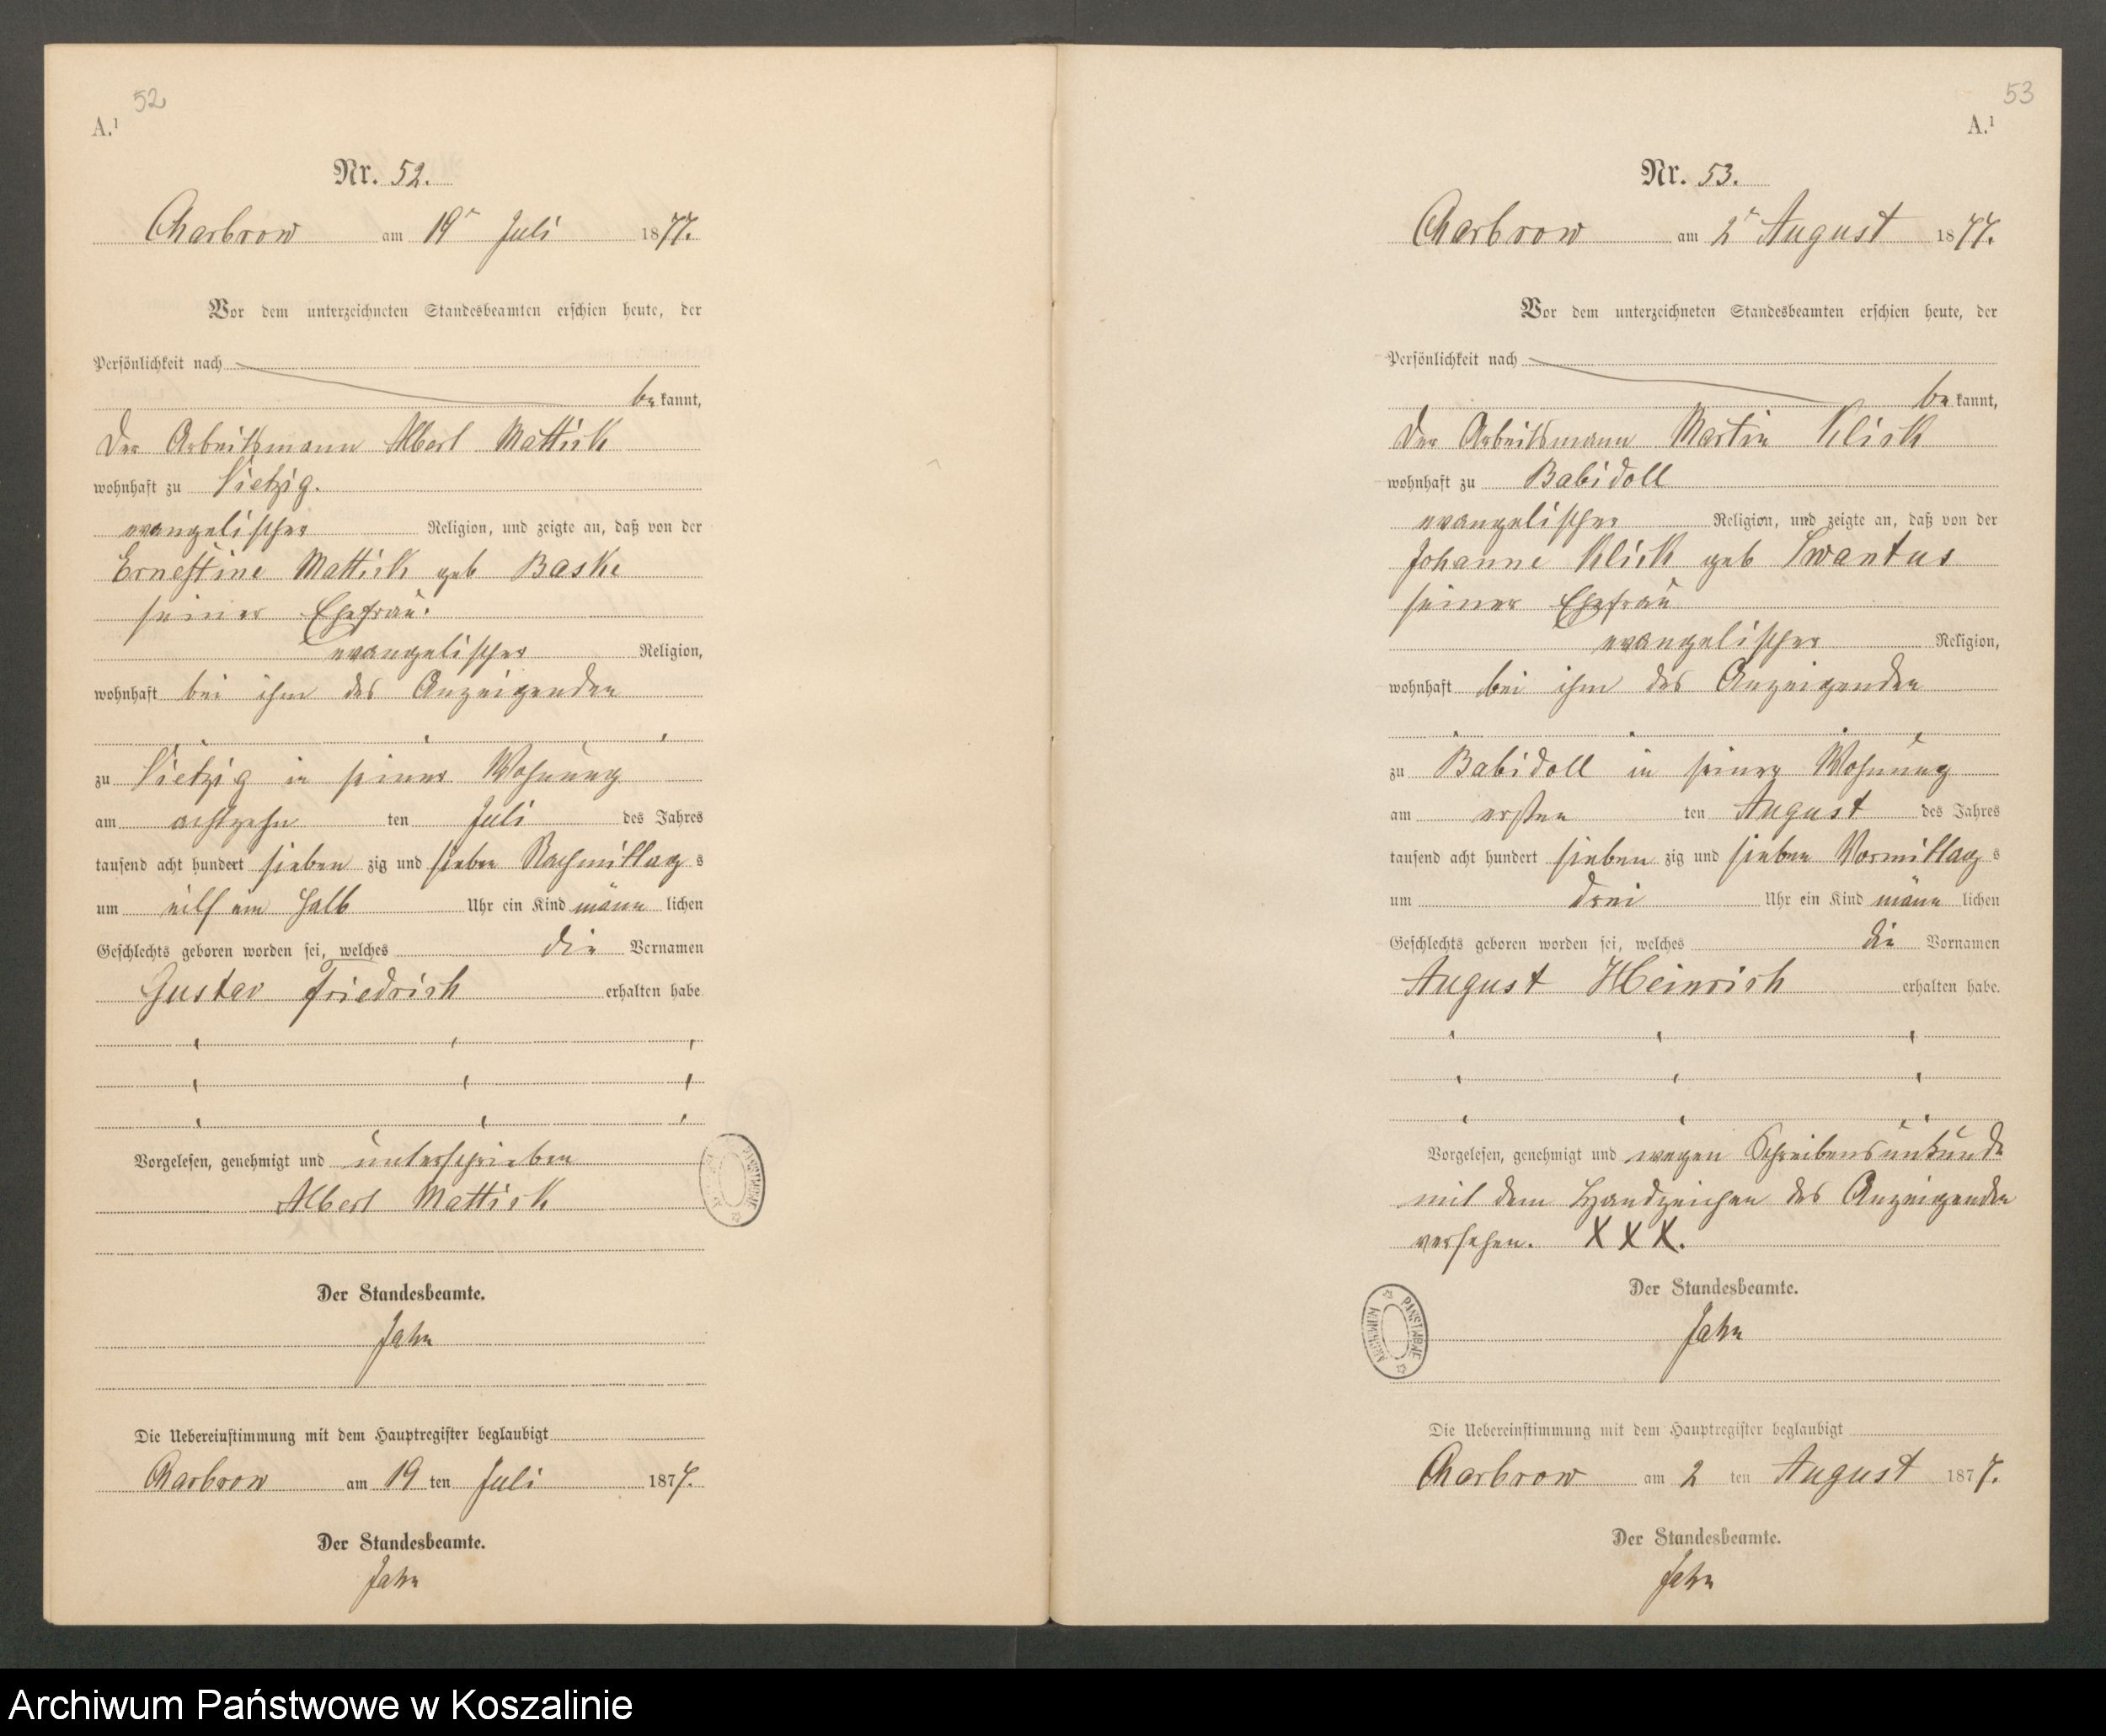 52
A.¹
Nr. 52.
Charbrow am 19ᵗ Juli 1877.
Vor dem unterzeichneten Standesbeamten erschien heute, der
Persönlichkeit nach
bekannt,
der Arbeitsmann Albert Mattick
wohnhaft zu Vietzig.
evangelischer Religion, und zeigte an, daß von der
Ernestine Mattick geb Baske
seiner Ehefrau.
evangelischer Religion,
wohnhaft bei ihm des Anzeigenden
zu Vietzig in seiner Wohnung
am achtzehn ten Juli des Jahres
tausend acht hundert sieben zig und sieben Nachmittag s
um eilf ein halb Uhr ein Kind männ lichen
Geschlechts geboren worden sei, welches die Vornamen
Gustav Friedrich erhalten habe
Vorgelesen, genehmigt und unterschrieben
Albert Mattick
Der Standesbeamte.
Jahn
Die Uebereinstimmung mit dem Hauptregister beglaubigt
Charbrow am 19 ten Juli 1877.
Der Standesbeamte.
Jahn
53
A.¹
Nr. 53.
Charbrow am 2ᵗ August 1877.
Vor dem unterzeichneten Standesbeamten erschien heute, der
Persönlichkeit nach
bekannt,
der Arbeitsmann Martin Klick
wohnhaft zu Babidoll
evangelischer Religion, und zeigte an, daß von der
Johanne Klick geb Swantus
seiner Ehefrau
evangelischer Religion,
wohnhaft bei ihm des Anzeigenden
zu Babidoll in seiner Wohnung
am ersten ten August des Jahres
tausend acht hundert sieben zig und sieben Vormittag s
um drei Uhr ein Kind männ lichen
Geschlechts geboren worden sei, welches die Vornamen
August Heinrich erhalten habe.
Vorgelesen, genehmigt und wegen Schreibensunkunde
mit dem Handzeichen des Anzeigenden
versehen. XXX.
Der Standesbeamte.
Jahn
ARCHIWUM PAŃSTWOWE
Die Uebereinstimmung mit dem Hauptregister beglaubigt
Charbrow am 2 ten August 1877.
Der Standesbeamte.
Jahn
Archiwum Państwowe w Koszalinie